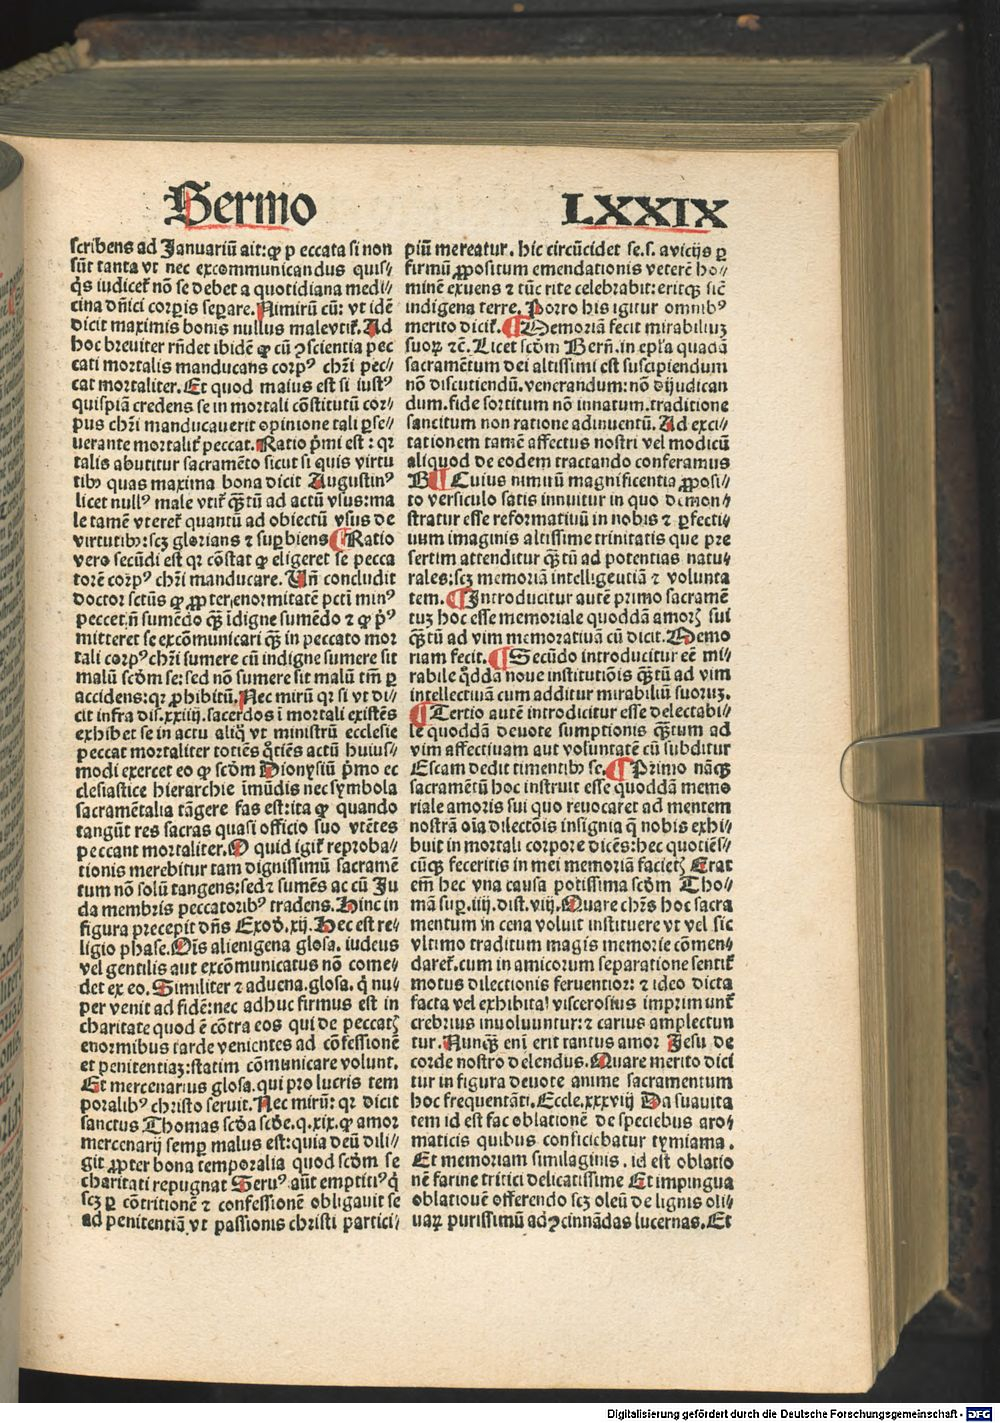 Sermo LXXIX
scribens ad Januariū ait: ꝙ p eccata si non
sūt tanta vt nec excommunicandus quis//
q̄s iudicet᷑ nō se debet a quotidiana medi//
cina dn̄ici corꝑis seꝑare. Nimirū cū: vt idē
dicit maximis bonis nullus male vtit᷑. Ad
hoc breuiter rn̄det ibidē ꝙ cū ꝯscientia pec
cati mortalis manducans corpꝰ chr̄i pec//
cat mortaliter. Et quod maius est si iustꝰ
quispiā credens se in mortali cōstitutū cor//
pus chr̄i manducauerit opinione tali ꝑse//
uerante mortalit᷑ peccat. Ratio p̄mi est: qꝛ
talis abutitur sacramēto sicut si quis virtu
tibꝰ quas maxima bona dicit Augustinꝰ
licet nullꝰ male vtit᷑ qꝫ̄tū ad actū vsus: ma
le tamē vteret᷑ quantū ad obiectū vsus de
virtutibꝰ: scꝫ glorians ⁊ suꝑbiens ¶ Ratio
vero secūdi est qꝛ cōstat ꝙ eligeret se pecca
torē corpꝰ chr̄i manducare. Un̄ concludit
doctor sctūs ꝙ ꝓpter enormitatē pctī minꝰ
peccet n̄ sumēdo qꝫ̄ īdigne sumēdo ⁊ ꝙ pꝰ̄
mitteret se excōmunicari qꝫ̄ in peccato mor
tali corpꝰ chr̄i sumere cū indigne sumere sit
malū scd̄m se: sed nō sumere sit malū tm̄ ꝑ
accidens: qꝛ ꝓhibitū. Nec mirū qꝛ si vt di//
cit infra dis. xxiiij. sacerdos ī mortali existēs
exhibet se in actu aliq̄ vt ministrū ecclesie
peccat mortaliter totiēs q̄tiēs actū huius//
modi exercet eo ꝙ scd̄m Dionysiū p̄mo ec
clesiastice hierarchie īmūdis nec symbola
sacramētalia tāgere fas est: ita ꝙ quando
tangūt res sacras quasi officio suo vtētes
peccant mortaliter. O quid igit᷑ reproba//
tionis merebitur tam dignissimū sacramē
tum nō solū tangens: sed ⁊ sumēs ac cū Ju
da membris peccatoribꝰ tradens. Hinc in
figura precepit dn̄s Exod̄. xij. Hec est re//
ligio phase. Oīs alienigena glosa. iudeus
vel gentilis aut excōmunicatus nō come//
det ex eo. Similiter ⁊ aduena. glosa. q̄ nu//
per venit ad fidē: nec adhuc firmus est in
charitate quod ē cōtra eos qui de peccatꝭ
enormibus tarde venientes ad cōfessionē
et penitentiaꝫ: statim cōmunicare volunt.
Et mercenarius glosa. qui pro lucris tem
poralibꝰ christo seruit. Nec mirū: qꝛ dicit
sanctus Thomas scd̄a scd̄e. q. xix. ꝙ amor
mercenarij semꝑ malus est: quia deū dili//
git ꝓpter bona temporalia quod scd̄m se
charitati repugnat Seruꝰ aūt emptitiꝰ q̄
scꝫ ꝑ cōtritionē ⁊ confessionē obligauit se
ad penitentiā vt passionis christi partici//
piū mereatur. hic circūcidet se. s. a vicijs ꝑ
firmū ꝓpositum emendationis veterē ho//
minē exuens ⁊ tūc rite celebrabit: eritqꝫ sic̄
indigena terre. Porro his igitur omnibꝰ
merito dicit᷑. ¶ Memoriā fecit mirabiliuꝫ
suoꝝ ⁊c̄. Licet scd̄m Bern̄. in epl̄a quadā
sacramētum dei altissimi est suscipiendum
nō discutiendū. venerandum: nō dijudican
dum. fide sortitum nō innatum. traditione
sancitum non ratione adinuentū. Ad exci//
tationem tamē affectus nostri vel modicū
aliquod de eodem tractando conferamus
B ¶ Cuius nimirū magnificentia ꝓposi//
to versiculo satis innuitur in quo demon//
stratur esse reformatiuū in nobis ⁊ ꝑfecti//
uum imaginis altissime trinitatis que pre
sertim attenditur qꝫ̄tū ad potentias natu//
rales: scꝫ memoriā intelligeutiā ⁊ volunta
tem. ¶ Introducitur autē primo sacramē
tuꝫ hoc esse memoriale quoddā amorꝭ sui
qꝫ̄tū ad vim memoratiuā cū dicit. Memo
riam fecit. ¶ Secūdo introducitur eē mi//
rabile q̄ddā noue institutiōis qꝫ̄tū ad vim
intellectiuā cum additur mirabiliū suoruꝫ.
¶ Tertio autē introdicitur esse delectabi//
le quoddā deuote sumptionis qꝫ̄tum ad
vim affectiuam aut voluntatē cū subditur
Escam dedit timentibꝰ se. ¶ Primo nāqꝫ
sacramētū hoc instruit esse quoddā memo
riale amoris sui quo reuocaret ad mentem
nostrā oīa dilectōis insignia q̄ nobis exhi//
buit in mortali corpore dicēs: hec quotiēs//
cūqꝫ feceritis in mei memoriā facietꝭ Erat
em̄ hec vna causa potissima scd̄m Tho//
mā suꝑ. iiij. dist. viij. Quare chr̄s hoc sacra
mentum in cena voluit instituere vt vel sic
vltimo traditum magis memorie cōmen//
daret᷑. cum in amicorum separatione sentit᷑
motus dilectionis feruentior: ⁊ ideo dicta
facta vel exhibita viscerosius imprimunt᷑
crebrius inuoluuntur: ⁊ carius amplectun
tur. Nunqꝫ̄ eni erit tantus amor Jesu de
corde nostro delendus. Quare merito dici
tur in figura deuote anime sacramentum
hoc frequentāti. Eccle. xxxviij Da suauita
tem id est fac oblationē de speciebus aro//
maticis quibus conficiebatur tymiama.
Et memoriam similaginis. id est oblatio
nē farine tritici delicatissime Et impingua
oblationē offerendo scꝫ oleū de lignis oli//
uaꝝ purissimū ad ꝯcinnādas lucernas. Et
Digitalisierung gefördert durch die Deutsche Forschungsgemeinschaft - DFG